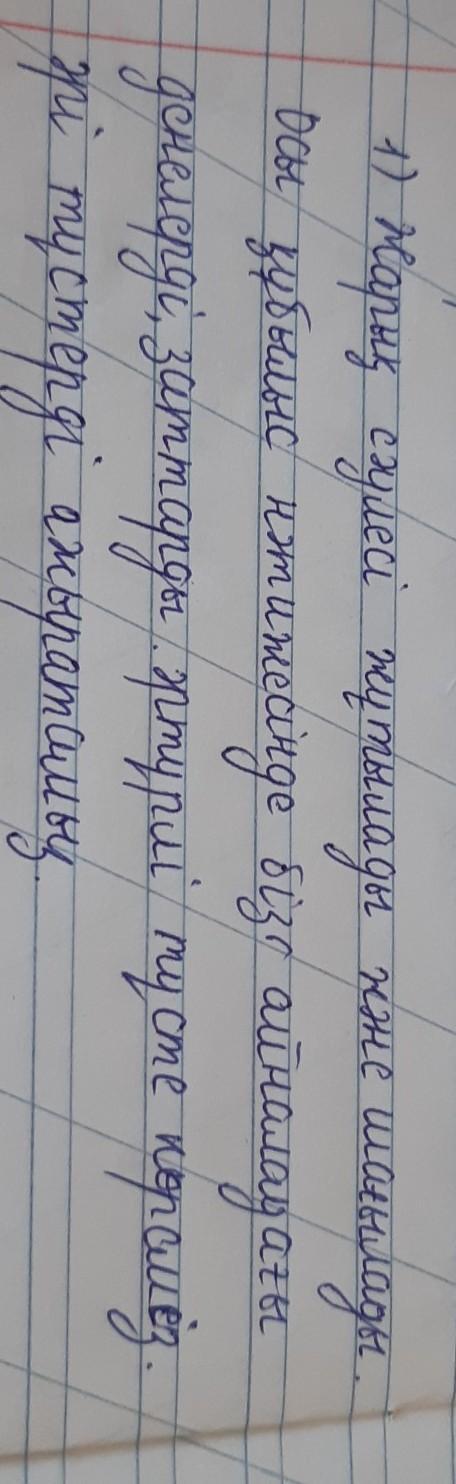 1) Жарық сәулесі жұтылады және шағылады.
Осы құбылыс нәтижесінде біз айналадағы
денелерді, заттарды әртүрлі түсте көреміз.
Әрі түстерді ажыратамыз.